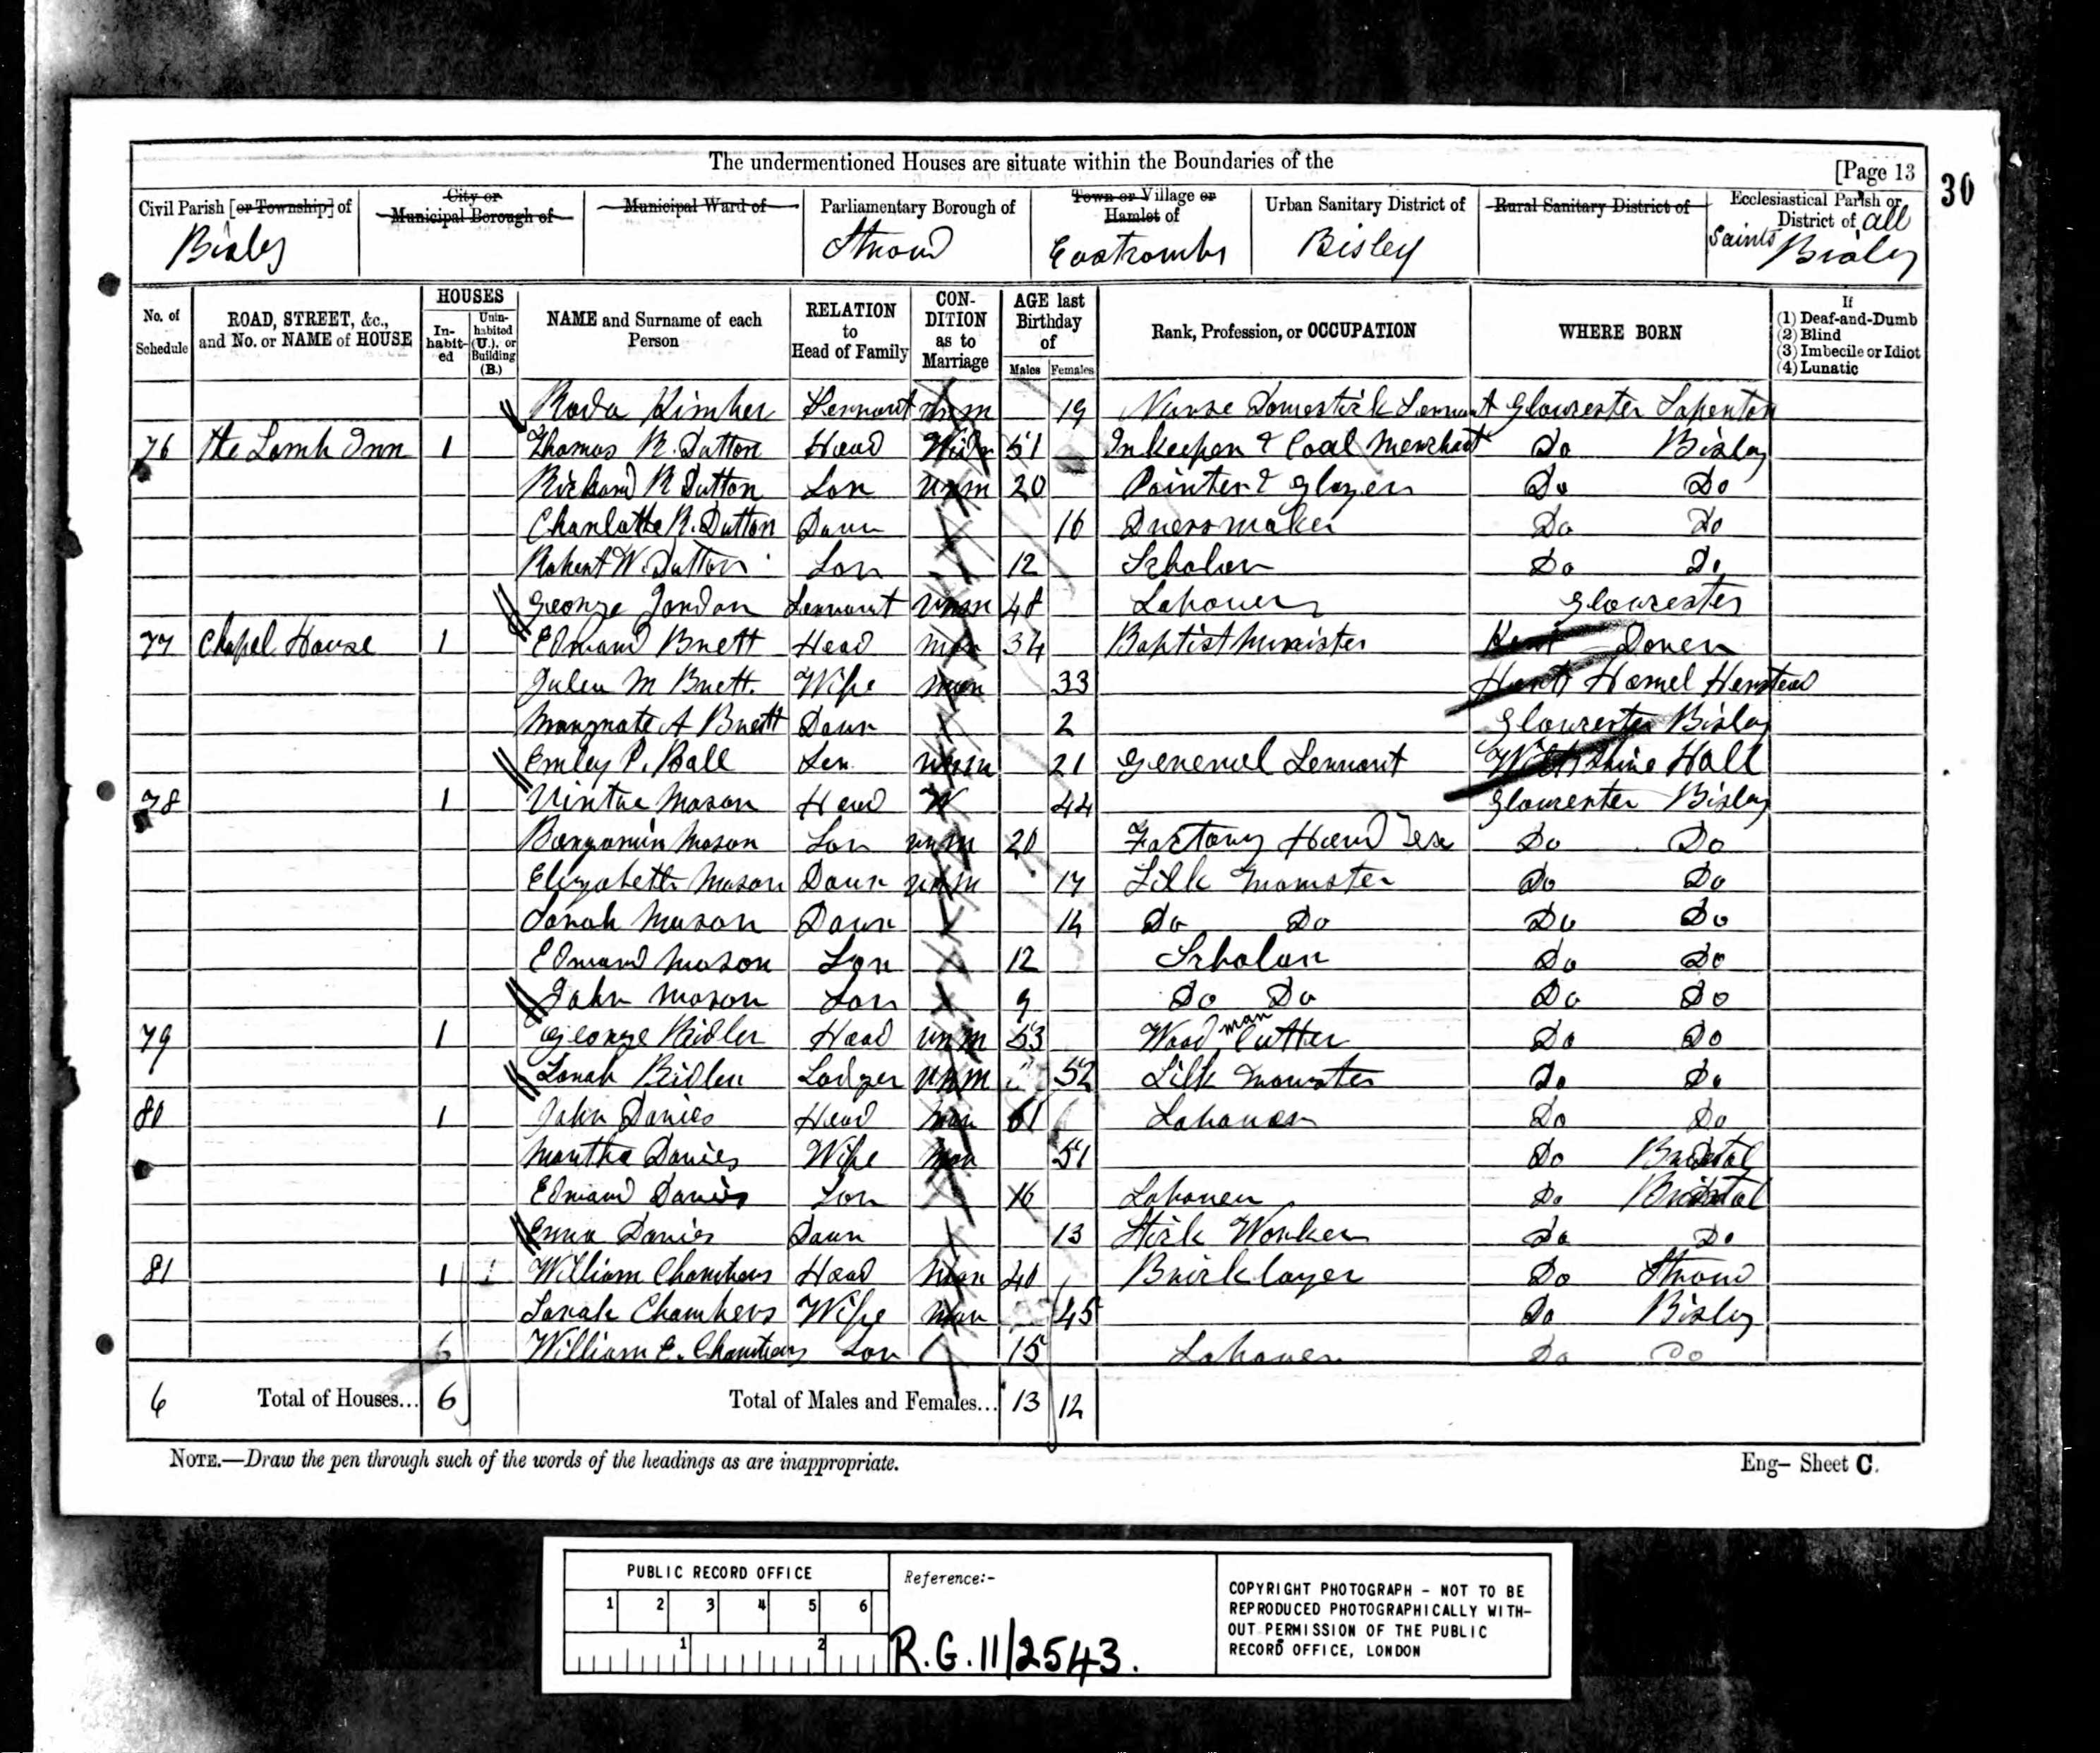 The undermentioned Houses are situate within the Boundaries of the
[Page 13
30
Civil Parish [or Township] of Bisley
City or Municipal Borough of
Municipal Ward of
Parliamentary Borough of Stroud
Town or Village or Hamlet of Eastcombs
Urban Sanitary District of Bisley
Rural Sanitary District of
Ecclesiastical Parish or District of All Saints Bisley
No. of Schedule
ROAD, STREET, &c., and No. or NAME of HOUSE
HOUSES
In-habit-ed
Unin-habited (U.), or Building (B.)
NAME and Surname of each Person
RELATION to Head of Family
CON-DITION as to Marriage
AGE last Birthday of
Males
Females
Rank, Profession, or OCCUPATION
WHERE BORN
If
(1) Deaf-and-Dumb
(2) Blind
(3) Imbecile or Idiot
(4) Lunatic
Roda Kimber Servant unm 19 Nurse Domestick Servant Gloucester Sapenton
76 the Lamb Inn 1 Thomas R. Dutton Head Widr 51 Inkeeper & Coal Merchant Do Bisley
Richard R Dutton Son unm 20 Painter & Glazer Do Do
Charlotte R. Dutton Daur 16 Dressmaker Do Do
Robert W. Dutton Son 12 Scholar Do Do
George Jordan Servant unm 48 Labourer Gloucester
77 Chapel House 1 Edmund Brett Head mar 34 Baptist Minister Kent Dover
Julia M Brett. Wife mar 33 Herts Hamel Hemstead
Margrate A Brett Daur 2 Gloucester Bisley
Emley P. Ball Ser unm 21 General Servant Wiltshire Hall
78 1 Virtue Mason Head W 44 Gloucester Bisley
Bengamin Mason Son unm 20 Factory Hand Do Do
Elizabeth Mason Daur unm 17 Silk Do Do
Sarah Mason Daur 14 Do Do Do Do
Edmund Mason Son 12 Scholar Do Do
John Mason Son 9 Do Do Do Do
79 1 George Ridler Head unm 53 Wood man Cutter Do Do
Sarah Ridler Lodger unm 52 Silk Do Do
80 1 John Davies Head mar 61 Labourer Do Do
Martha Davies Wife Mar 51 Do Bristol
Edmund Davies Son 16 Labourer Do Bristol
Emma Davies Daur 13 Stick Worker Do Do
81 1 William Chambers Head Mar 40 Bricklayer Do Stroud
Sarah Chambers Wife Mar 45 Do Bisley
6 William E. Chambers Son 15 Labourer Do Do
6 Total of Houses... 6 Total of Males and Females... 13 12
NOTE.—Draw the pen through such of the words of the headings as are inappropriate.
Eng– Sheet C.
PUBLIC RECORD OFFICE
1 2 3 4 5 6
1 2
Reference:-
R.G. 11/2543.
COPYRIGHT PHOTOGRAPH - NOT TO BE
REPRODUCED PHOTOGRAPHICALLY WITH-
OUT PERMISSION OF THE PUBLIC
RECORD OFFICE, LONDON